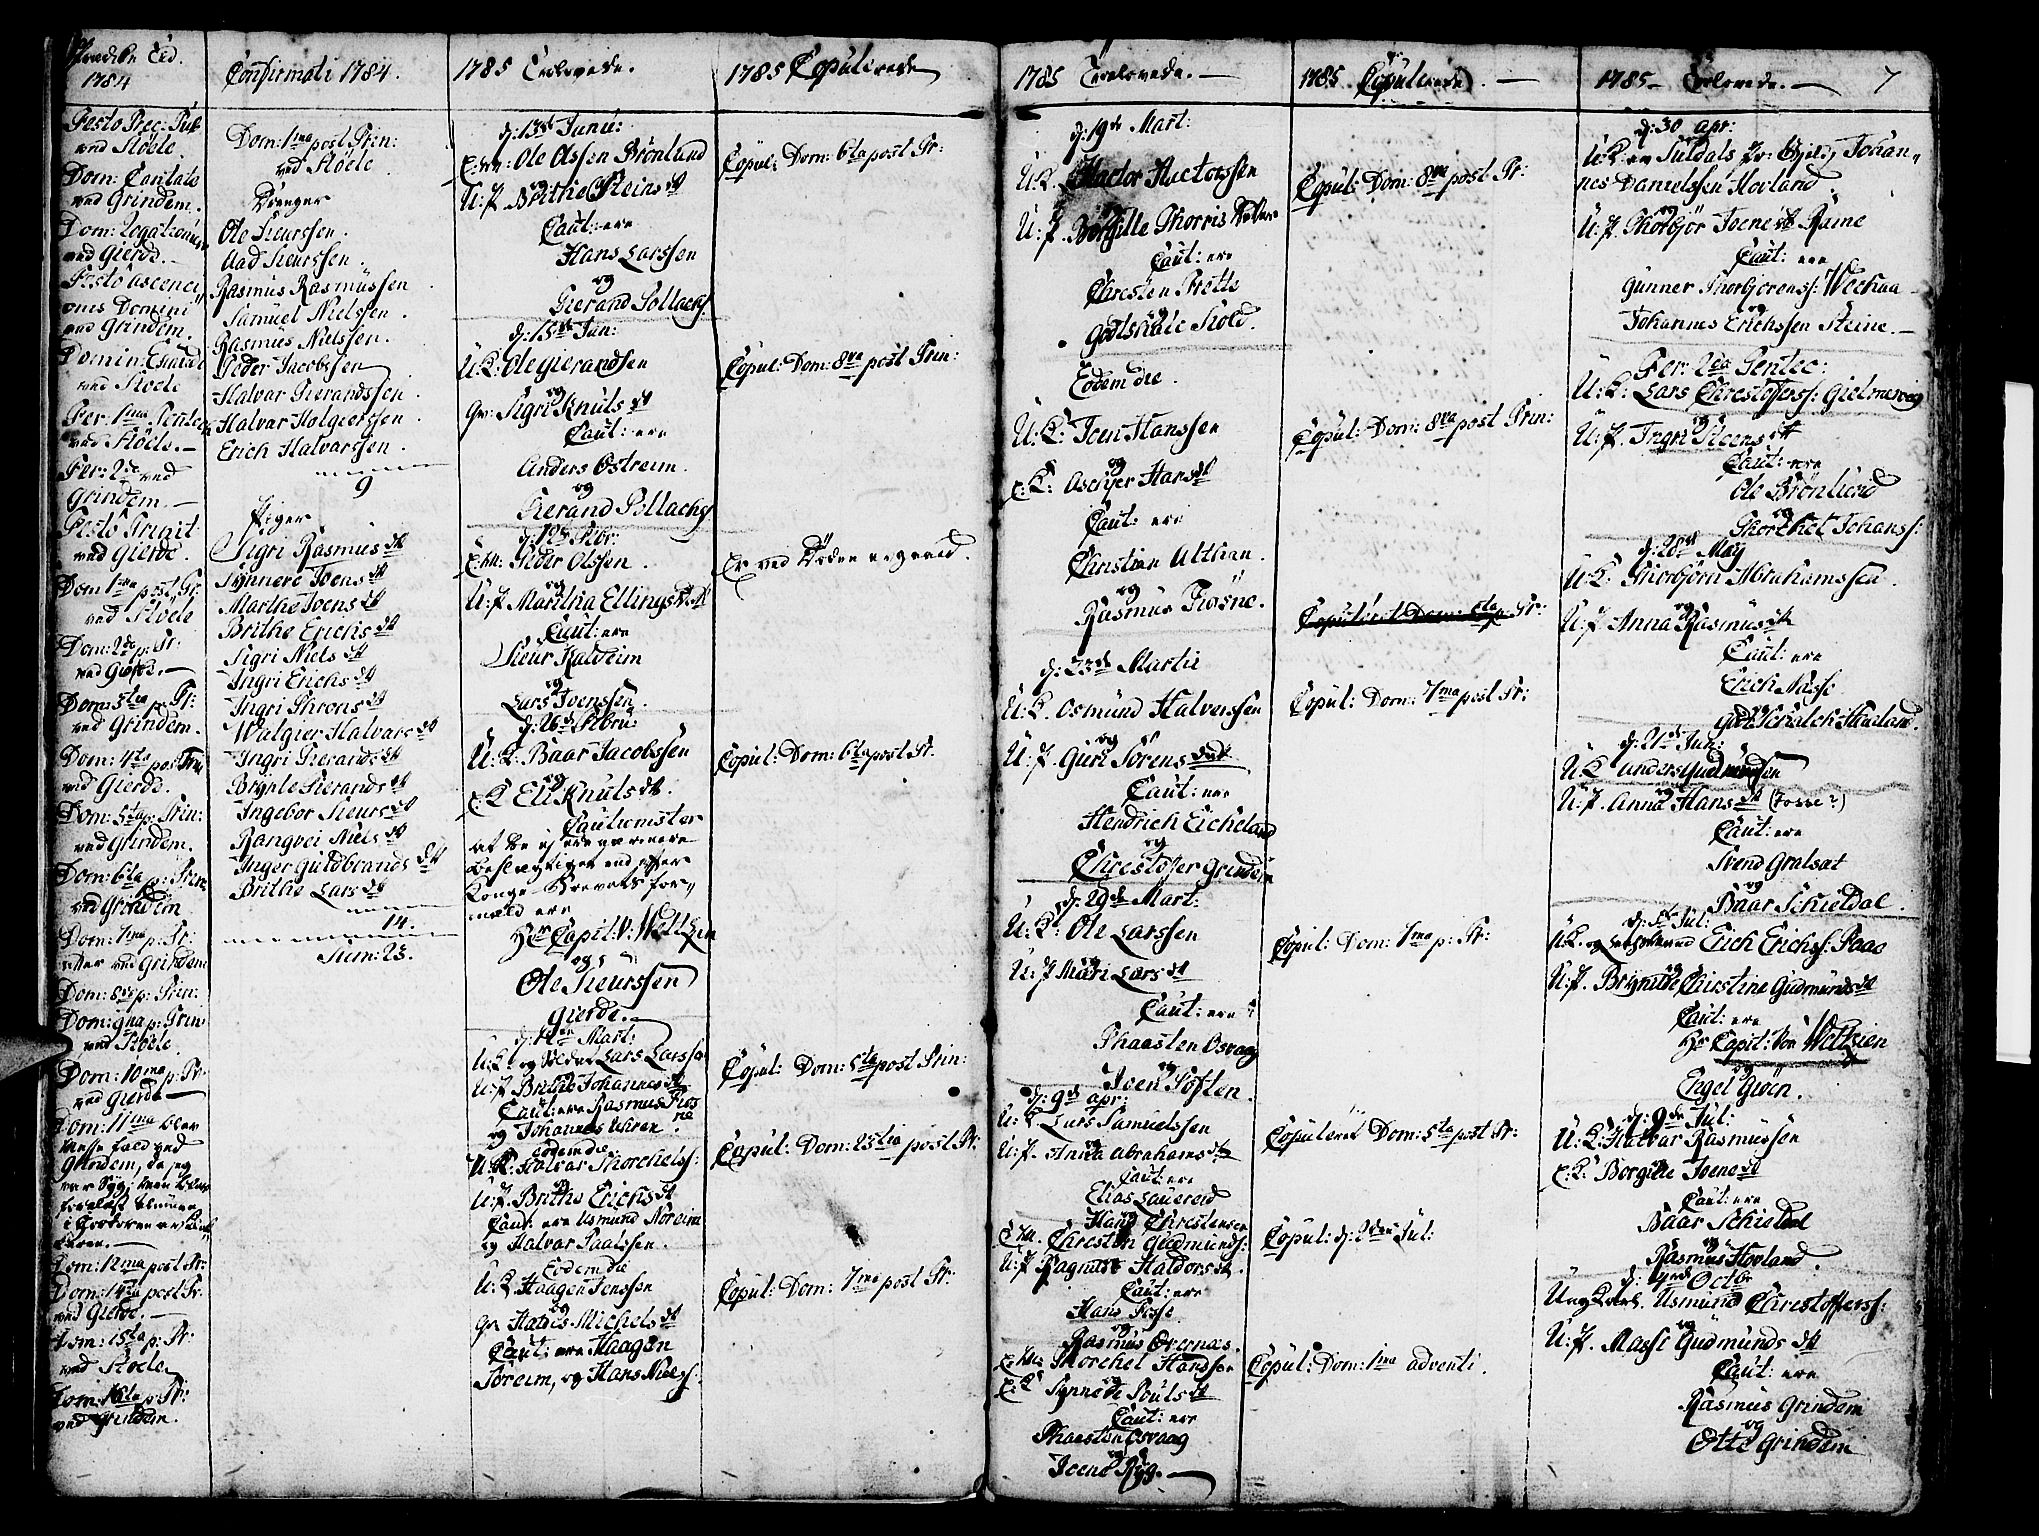 Prædike Tid.
1784
Festo Prec: Pub:
ved Støele.
Dom: Cantate
ved Grindem.
Dom: Rogationum
ved Gierde.
Festo Ascenci
onis Domini
ved Grindem.
Domin: Exaudi
ved Støele
Fer: 1ma Pentec:
ved Støele.
Fer: 2de ved
Grindem.
Festo Trinit:
ved Gierde.
Dom 1ma post Tr:
ved Støele
Dom: 2de p: Tr:
ved Gierde.
Dom: 3tia p: Tr:
ved Grindem.
Dom: 4ta post Trin:
ved Gierde.
Dom: 5ta p: Trin:
ved Grindem.
Dom: 6ta p: Trin:
ved Grindem
Dom: 7ma p: Tr:
atter ved Grindem
Dom: 8va p: Trin:
Dom: 9na p: Trin:
ved Støele.
Dom: 10ma p: Tr:
ved Gierde
Dom: 11ma blev
Messe fald ved
Grindem, da jeg
var Syg,
Dom: 12ma post Tr:
Dom: 14ta post Tr.
ved Gierde.
Dom: 15ta p: Tr:
ved Støele
Dom: 16ta p: Tr:
ved Grindem.
Confirmati 1784.
Dom: 1ma post Trin:
ved Støele
Drenger
Ole Siurssen.
Aad Siurssen.
Rasmus Rasmussen.
Samuel Nielssen.
Rasmus Nielssen.
Peder Jacobssen
Halvar Tierandssen.
Halvar Holgierssen.
Erich Halvarssen.
9
Piger
Sigri Rasmus dt
Synneve Joens dt
Marthe Joens dt
Brithe Erichs dt
Sigri Niels dt
Ingri Erichs dt
Ingri Throns dt
Walgier Halvars dt
Ingri Tierands dt
Brynle Tierands dt
Ingebor Siurs dt
Rangvei Niels dt
Inger Guldbrands dt
Brithe Lars dt
14.
Sum: 23.
1785 Trolovede.
d: 13de Janu:
E: m: Ole Olssen Brønlund
og
U: P. Brithe Steins dt
Caut: ere
Hans Larssen
og
Tierand Sollachs:
d: 15de Jan:
U: K: Ole Gierandsen
og
Gv: Sigri Knuts dt
Caut: ere
Anders Østreim.
og
Tierand Sollachs:
d: 12de Febr:
E: m: Peder Olssen.
og
U: P Maritha Ellings dt
Caut: ere
Siur Kalveim
og
Lars Ivenssen.
d: 26de Febru:
U: K. Baar Jacobssen
og
E: K Eli Knuts dt.
Cautionister
at de ej ere nærmere
beslægtiget end efter
Konge Brevets for,,
mæld ere
Hr Capit. V: Weltzin
og
Ole Siurssen
Gierde.
d: 1ten Mart:
U: K. og Peder Lars Larssen
U: P. Brithe Johannes dt
Caut: ere Rasmus Fros
ne
og Johannes Uhren.
eodem die
U: K: Halvar Thorchels:
og
U: P. Brithe Erichs dt
Caut: ere Usmund Noreim
og Halvar Saalssen.
Eodem die
U: K. Haagen Jenssen
og
Gv Hanes Michels dt
Caut: ere Haagen
Toreim, og Hans Niels:
1785 Copulerede
Copul: Dom: 6ta post Tr:
Copul: Dom: 8va post Trin:
Er ved Døden afgaaed.
Copul: Dom: 6ta post Tr.
Copul: Dom: 5ta post Trin:
Copul: Dom: 23tia post Tr:
Copul: Dom: 7ma post Tr:
1785 Trolovede.
d: 19de Mart:
U: K. Hactor Hactorssen
og
U: P. Borgille Thorris Datter
Caut: ere
Christen Trette
og
Godtskalc Skold.
Eodem die.
U: K: Joen Hanssen
og
E: K: Aschier Hans dt
Caut: ere
Christian Althan.
og
Rasmus Frøsne.
d: 23de Martii
U: K. Osmund Halvorssen
og
U: P. Guri Sørens Datt
Caut: ere
Hendrich Eicheland
og
Christoffer Grindem
d: 29de Mart:
U: K: Ole Larssen
og
U: P Mari Lars dt
Caut: ere:
Thaasten Osvaag
og
Joen Toften.
d: 9de apr:
U: K Lars Samuelssen
og
U: P. Anna Abrahams dt
Caut: ere
Elias Lauereid
og
Hans Christensen
E: m. Christen Gudmunds:
U: P Ragnilde Haldors dt.
Caut: ere
Hans Fosse
og
Rasmus Overnæs.
E: m: Thorchel Hanssen
og
E: K Synneve Pouls dt
Caut: ere
Thaasten Osvaag
og
Joene Ryg.
1785 Copulerede.
Copul: Dom: 8va post Tr:
Copul: Dom: 8va post Trin:
Copuleret Dom: 5ta p: Tr:
Copul: Dom: 7ma post Tr:
Copul: Dom: 7ma p: Tr:
Copuleret Dom: 5ta post Tr:
Copul: d: 2den Jul:
Copul: Dom: 1ma adventi.
1785 Trolovede. 7
d: 30 apr:
U: K: av Suldals Pr: Gield, Johan,,
nes Danielssen Hovland.
og
U: P. Thorbjør Joene dt Rame
Caut: ere
Gunner Thorbjørens: Wechaa
og
Johannes Erichssen Steine.
Fer: 2da Pentec:
U: K: Lars Christoffers: Gielmervig
og
U: P. Ingri Steens dt
Caut: ere
Ole Brønlund
og
Thorchel Johans:
d: 28de May
U: K. Thorbjørn Abrahamssen.
og
U: P Anna Rasmus dt
Caut: ere
Erich Næsse
og
Godtschalck Hauland.
d: 21de Jun:
U: K Anders Gudmundsen
og
U: P. Anna Hans dt (Fosse?)
Caut: ere
Svend Gralsat
og
Baar Schieldal.
d: 5te Jul:
U: K. og Erich Erichs: Faae
og
U: P. Brynilde Christine Gudmunds dt
Caut: ere
Hr Capit: Von Weltzien
og
Engel Giøen.
d: 9de Jul:
U: K: Halvar Rasmussen
E: K: Borgille Joene dt
Caut: ere
Baar Schieldal
og
Rasmus Hovland.
d: Octbr
Ung Karl. Usmund Christoffers:
og
U: P. Massi Gudmunds dt
Caut: ere
Rasmus Grindem
og
Otte Grindem